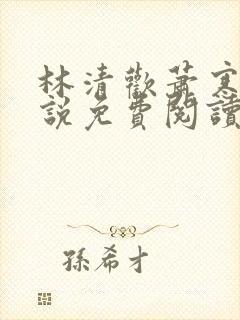 林清歡蕭寒
說免費閱讀
孫希才